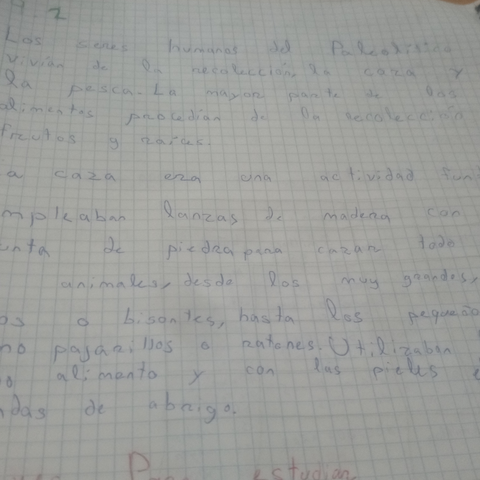 2
Los seres humanos del Paleolítico
vivían de la recolección, la caza y
la pesca. La mayor parte de los
alimentos procedían de la recolección
frutos y raíces.
a caza era una actividad fun
mpleaban lanzas de madera con
unta de piedra para cazar todo
animales, desde los muy grandes,
os o bisontes, hasta los pequeño
mo pajarillos o ratones. Utilizaban
mo alimanto y con las pieles
ndas de abrigo.
estudian